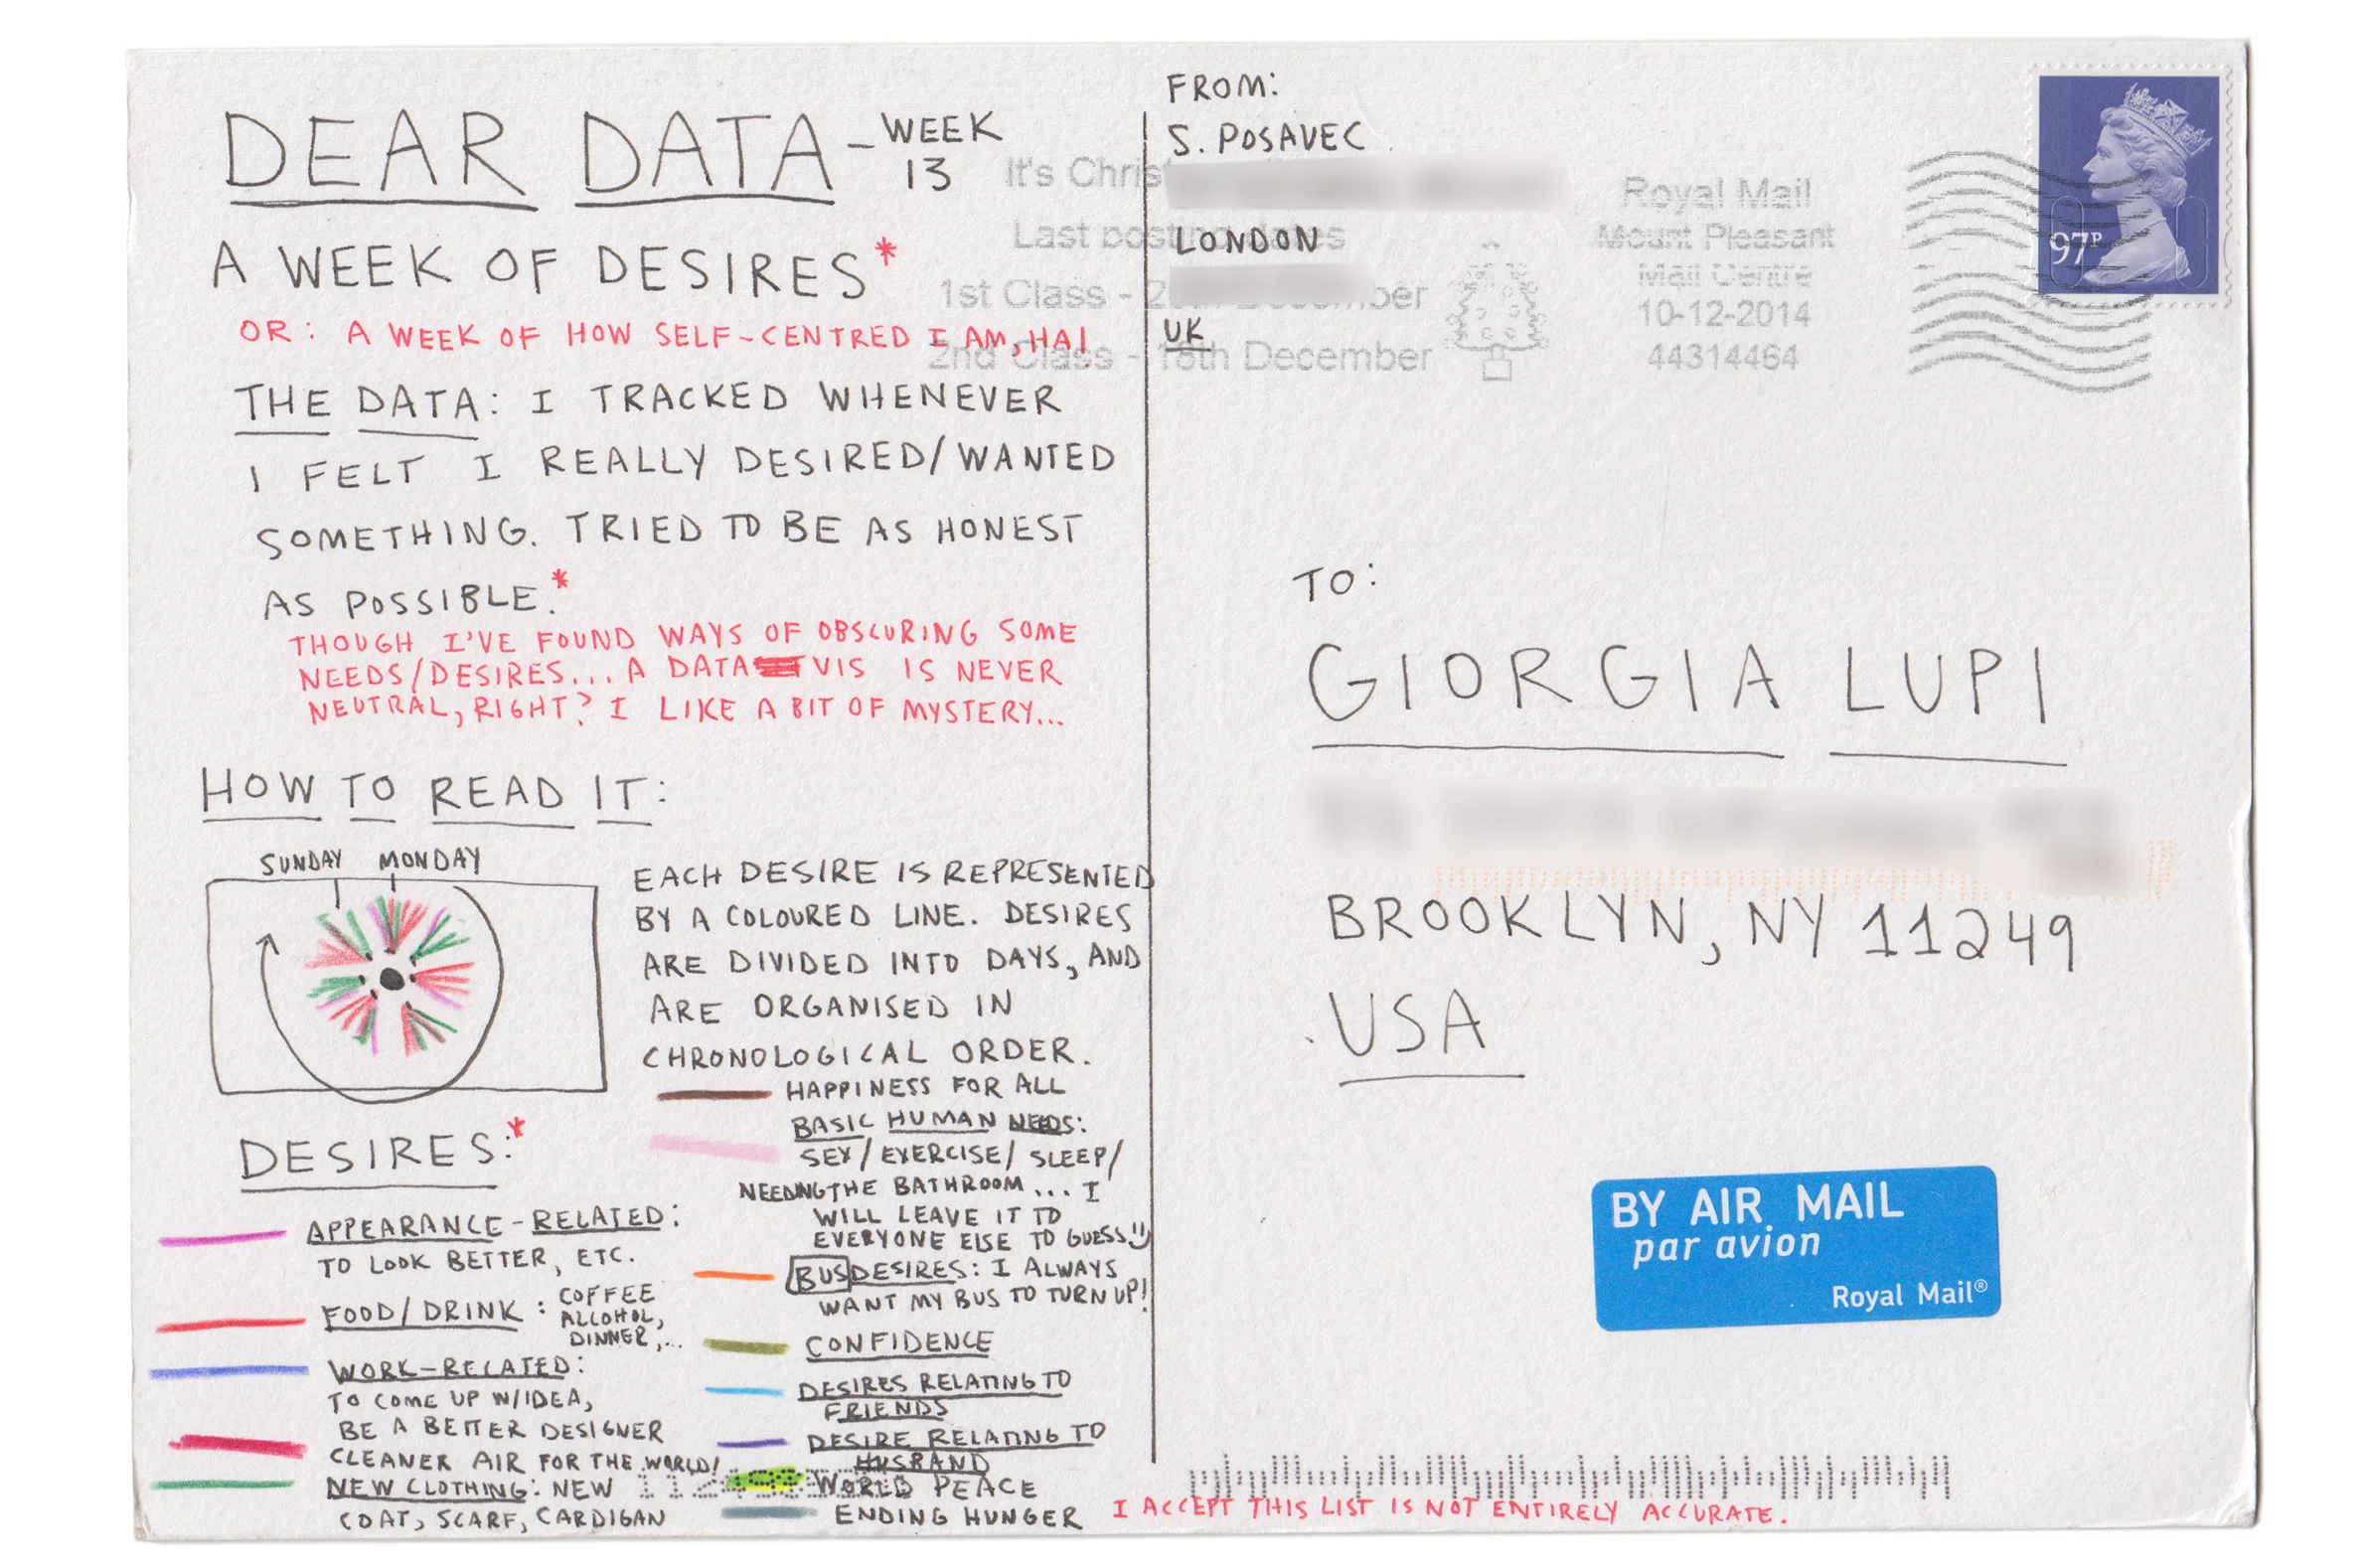 DEAR DATA - WEEK 13
A WEEK OF DESIRES*
OR: A WEEK OF HOW SELF-CENTRED I AM, HA!
THE DATA: I TRACKED WHENEVER
I FELT I REALLY DESIRED/WANTED
SOMETHING. TRIED TO BE AS HONEST
AS POSSIBLE.*
THOUGH I'VE FOUND WAYS OF OBSCURING SOME
NEEDS/DESIRES... A DATA VIS IS NEVER
NEUTRAL, RIGHT? I LIKE A BIT OF MYSTERY...
HOW TO READ IT:
SUNDAY MONDAY
EACH DESIRE IS REPRESENTED
BY A COLOURED LINE. DESIRES
ARE DIVIDED INTO DAYS, AND
ARE ORGANISED IN
CHRONOLOGICAL ORDER.
DESIRES:*
APPEARANCE-RELATED:
TO LOOK BETTER, ETC.
FOOD/DRINK: COFFEE
ALCOHOL,
DINNER,...
WORK-RELATED:
TO COME UP W/IDEA,
BE A BETTER DESIGNER
CLEANER AIR FOR THE WORLD!
NEW CLOTHING: NEW
COAT, SCARF, CARDIGAN
HAPPINESS FOR ALL
BASIC HUMAN NEEDS:
SEX/EXERCISE/SLEEP/
NEEDING THE BATHROOM... I
WILL LEAVE IT TO
EVERYONE ELSE TO GUESS
BUS DESIRES: I ALWAYS
WANT MY BUS TO TURN UP!
CONFIDENCE
DESIRES RELATING TO
FRIENDS
DESIRE RELATING TO
HUSBAND
WORLD PEACE
ENDING HUNGER
I ACCEPT THIS LIST IS NOT ENTIRELY ACCURATE.
FROM:
S. POSAVEC
LONDON
UK
It's Christ
Last posting dates
1st Class - December
2nd Class - 18th December
Royal Mail
Mount Pleasant
Mail Centre
10-12-2014
44314464
97P
TO:
GIORGIA LUPI
BROOKLYN, NY 11249
USA
BY AIR MAIL
par avion
Royal Mail®